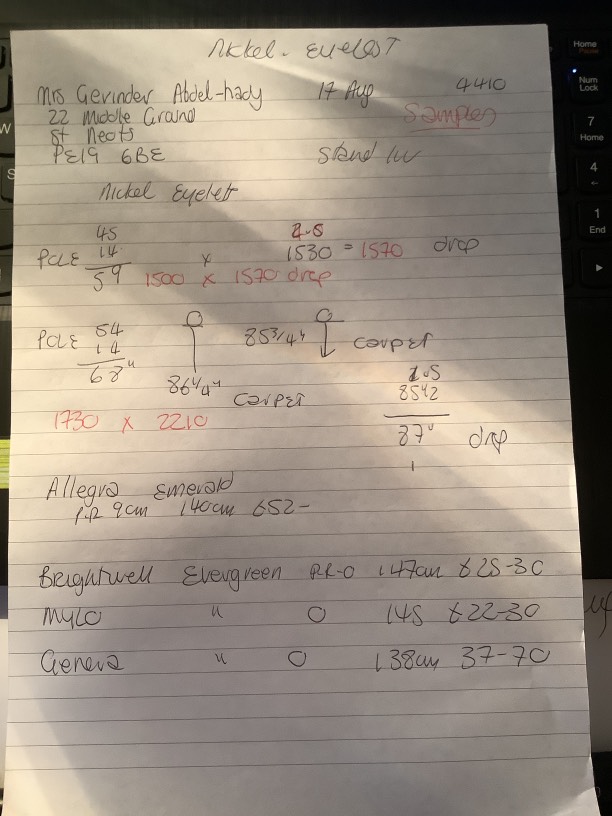 Nickel - Eyelet
Mrs Gevinder Abdel-hady 17 Aug 4410
22 Middle Ground Samples
St Neots
PE19 6BE Stand
Nickel Eyelet
45 2.5
POLE 14 x 1530 = 1570 drop
59 1500 x 1570 drop
POLE 54 85 3/4" carpet
14
68" 86 1/4" carpet 1.5
85 1/2
1730 x 2210
87" drop
Allegra Emerald
P.R 9cm 140cm 652-
Brightwell Evergreen PR-0 147cm £25-30
Mylo " 0 145 £22-30
Geneva " 0 138cm 37-70
Home
Pause
Num
Lock
7
Home
4
←
1
End
W
S